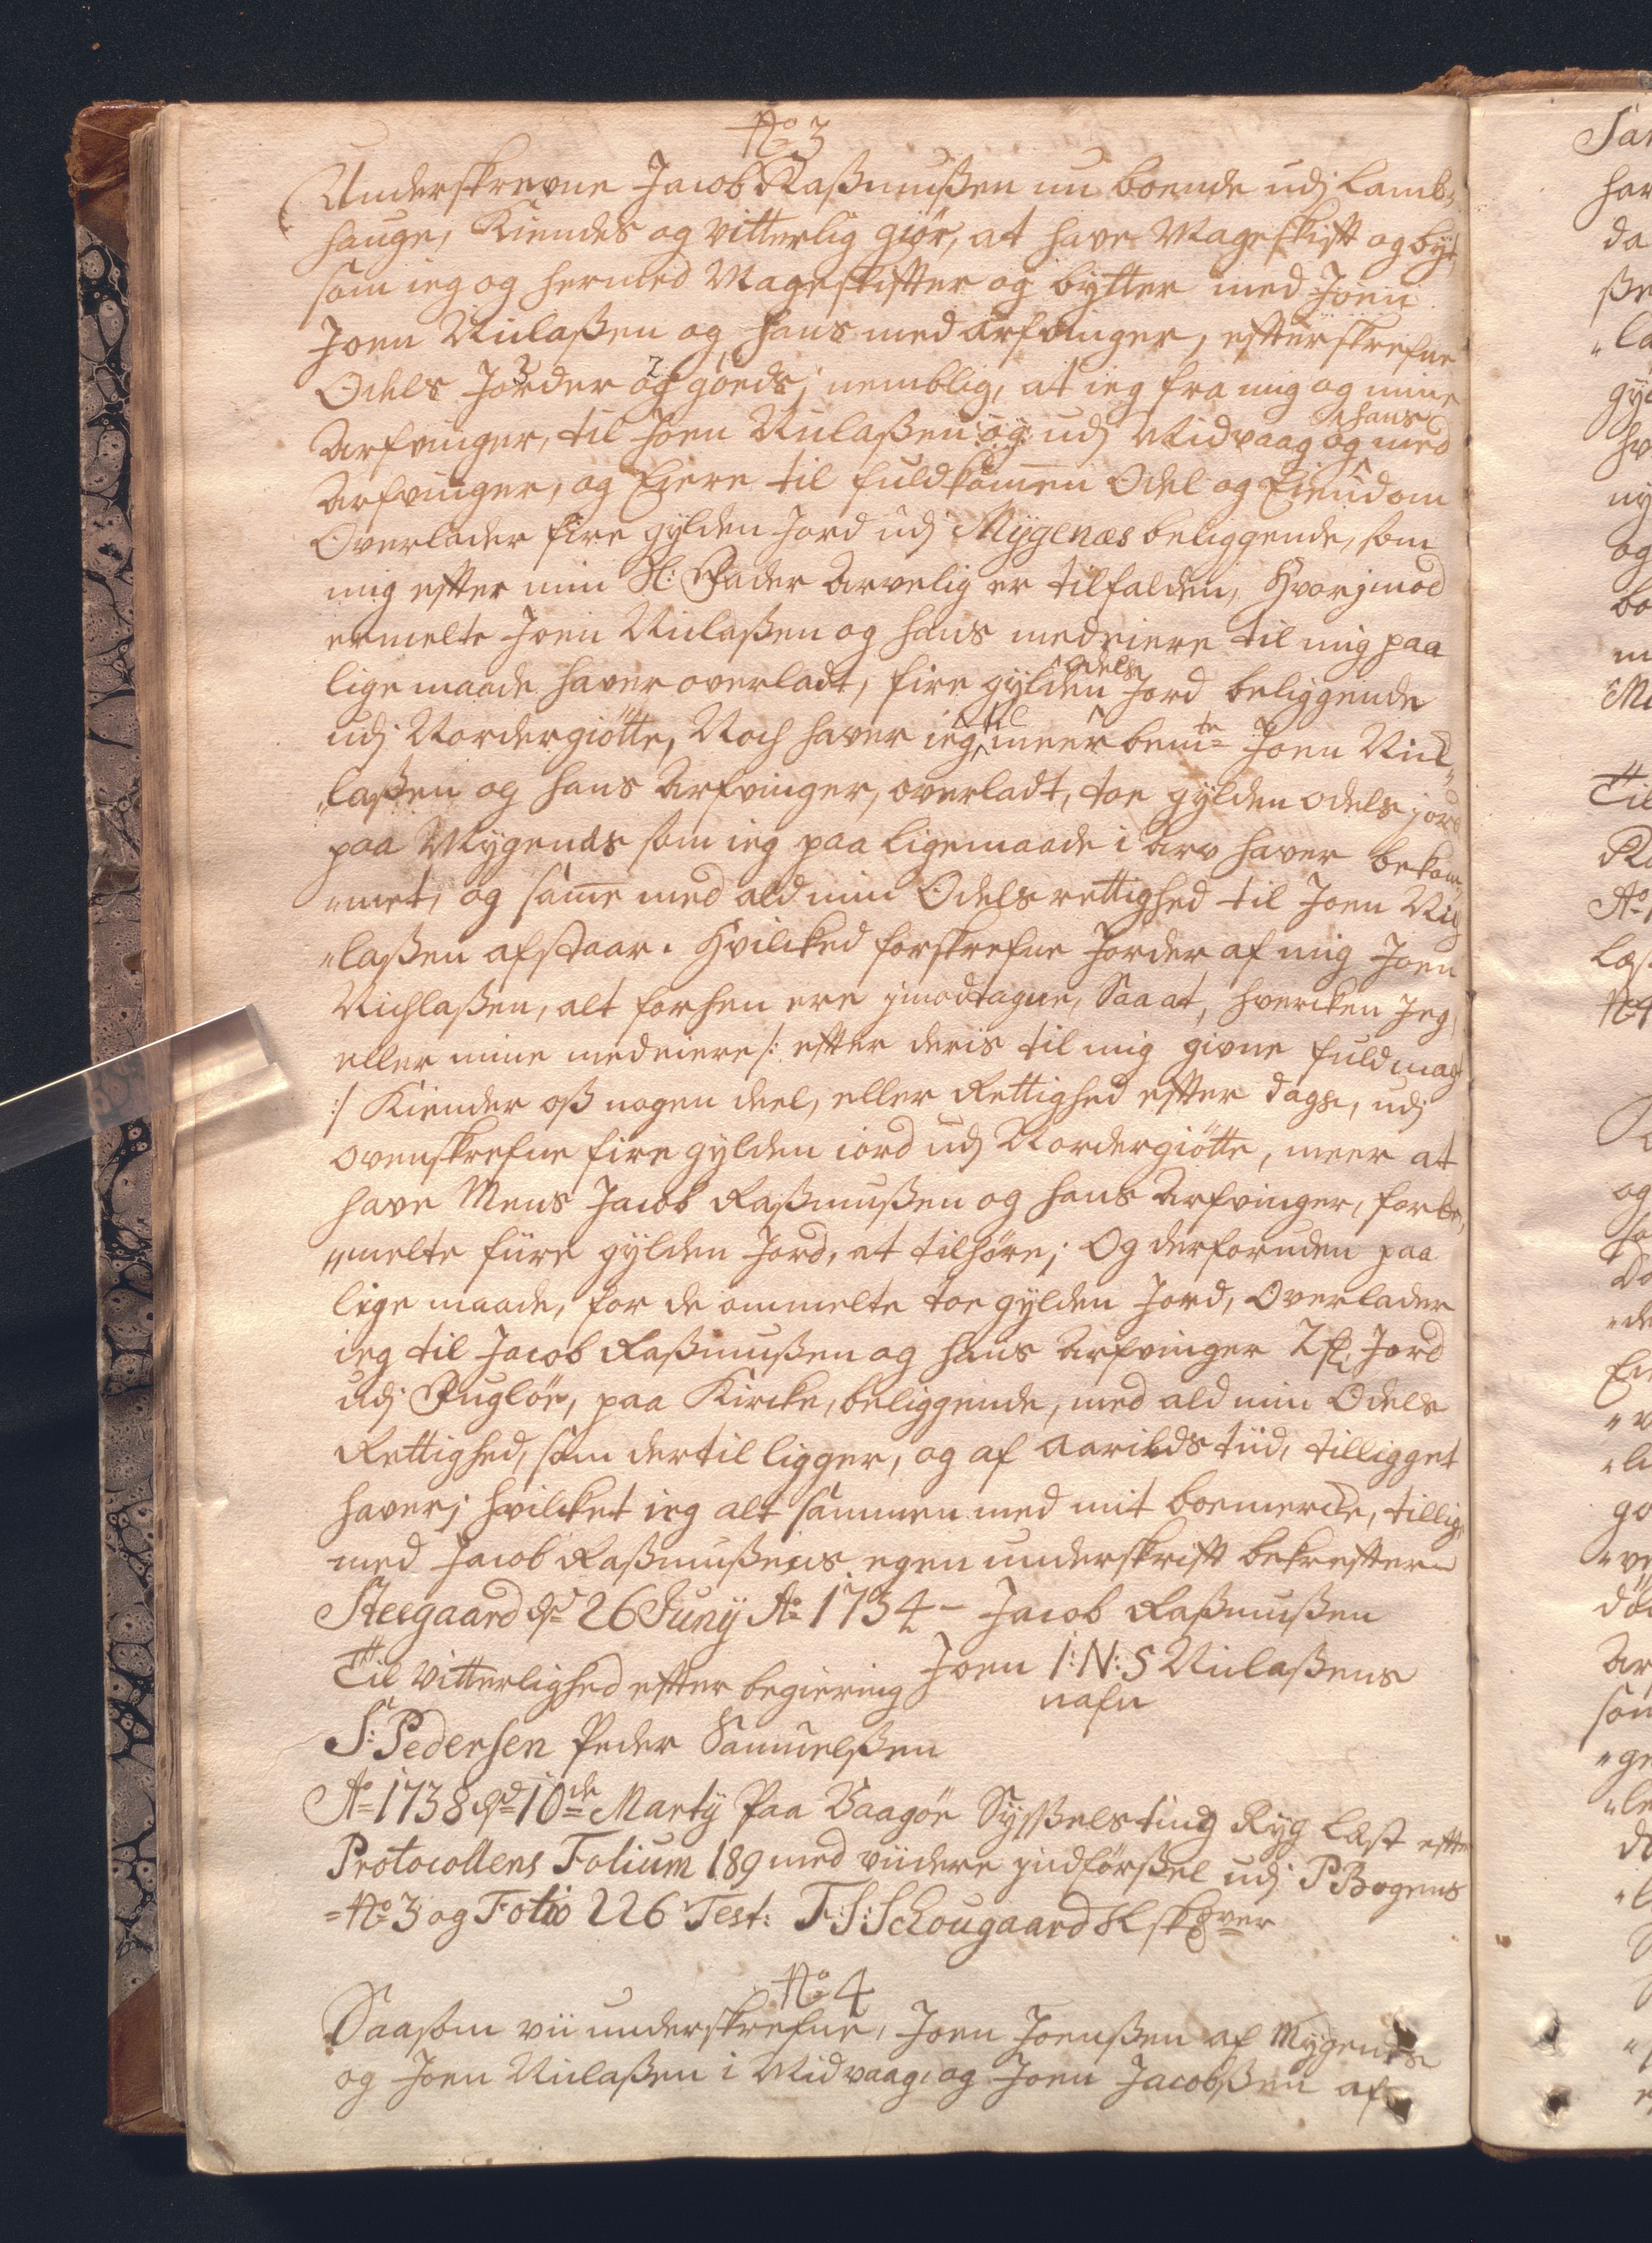 No 3
Underskrevne Jacob Raßmußen nu boende udj Lamb-
hauge, Kiendes og vitterlig giør, at have Mageskift og byt,
som ieg og hermed Mageskifter og bytter med Joen
Joen Niclaßen og hans med arfvinger, efterskrefne
Odels Jorder og goeds; nemblig, at ieg fra mig og mine
Arfvinger, til Joen Niclaßen og udj Midvaag og hans med
Arfvinger, og Eiere til fuldkommen Odel og Eiendom
Overlader fire gylden Jord udj Mygenæs beliggende, som
mig efter min Sl: Fader Arvelig er tilfalden, Hvorjmod
ermelte Joen Niclaßen og hans medeiere til mig paa
lige maade haver overladt, fire gylden odels Jord beliggende
udj Nordergiøtte, Noch haver ieg til meer bemte Joen Nic-
"laßen og hans Arfvinger, overladt, toe gylden odels jord
paa Mygenæs som ieg paa ligemaade i Arv haver bekom-
"met, og samme med ald min Odels rettighed til Joen Nic-
"laßen afstaar. Hvilcked forskrefne Jorder af mig Joen
Nichlaßen, alt forhen ere jmodtagne, Saa at, hvercken Jeg,
eller mine medeiere /: efter deris til mig givne fuldmagt
:/ Kiender oß nogen deel, eller Rettighed efter dags, udj
ovenskrefne fire gylden iord udj Nordergiøtte, meer at
have Mens Jacob Raßmußen og hans Arfvinger, forbe-
"melte fiire gylden Jord, at tilhøre; Og derforuden paa
lige maade, for de ommelte toe gylden Jord, Overlader
ieg til Jacob Raßmußen og hans Arfvinger 2 Jord
udj Fugløe, paa Kircke, beliggende, med ald min Odels
Rettighed, som dertil ligger, og af Aarilds tiid, tilligget
haver; hvilcket ieg alt sammen med mit boemercke, tillige
med Jacob Raßmußens egen underskrift bekrefter
Steegaard d 26 Juny Ao 1734 - Jacob Raßmußen
Til Vitterlighed efter begiering Joen I:N:S Niclaßens
nafn
S: Pedersen Peder Samuelßen
Ao 1738 d 10de Marty Paa Vaagøe Syßelsting Ryg Læst efter
Protocollens Folium 189 med viidere jndførßel udj PBogens
No 3 og Folio 226 Test: F:S:Schougaard
No 4
Saasom vii underskrefne, Joen Joenßen af Mygenæs
og Joen Niclaßen i Midvaag, og Joen Jacobßen af